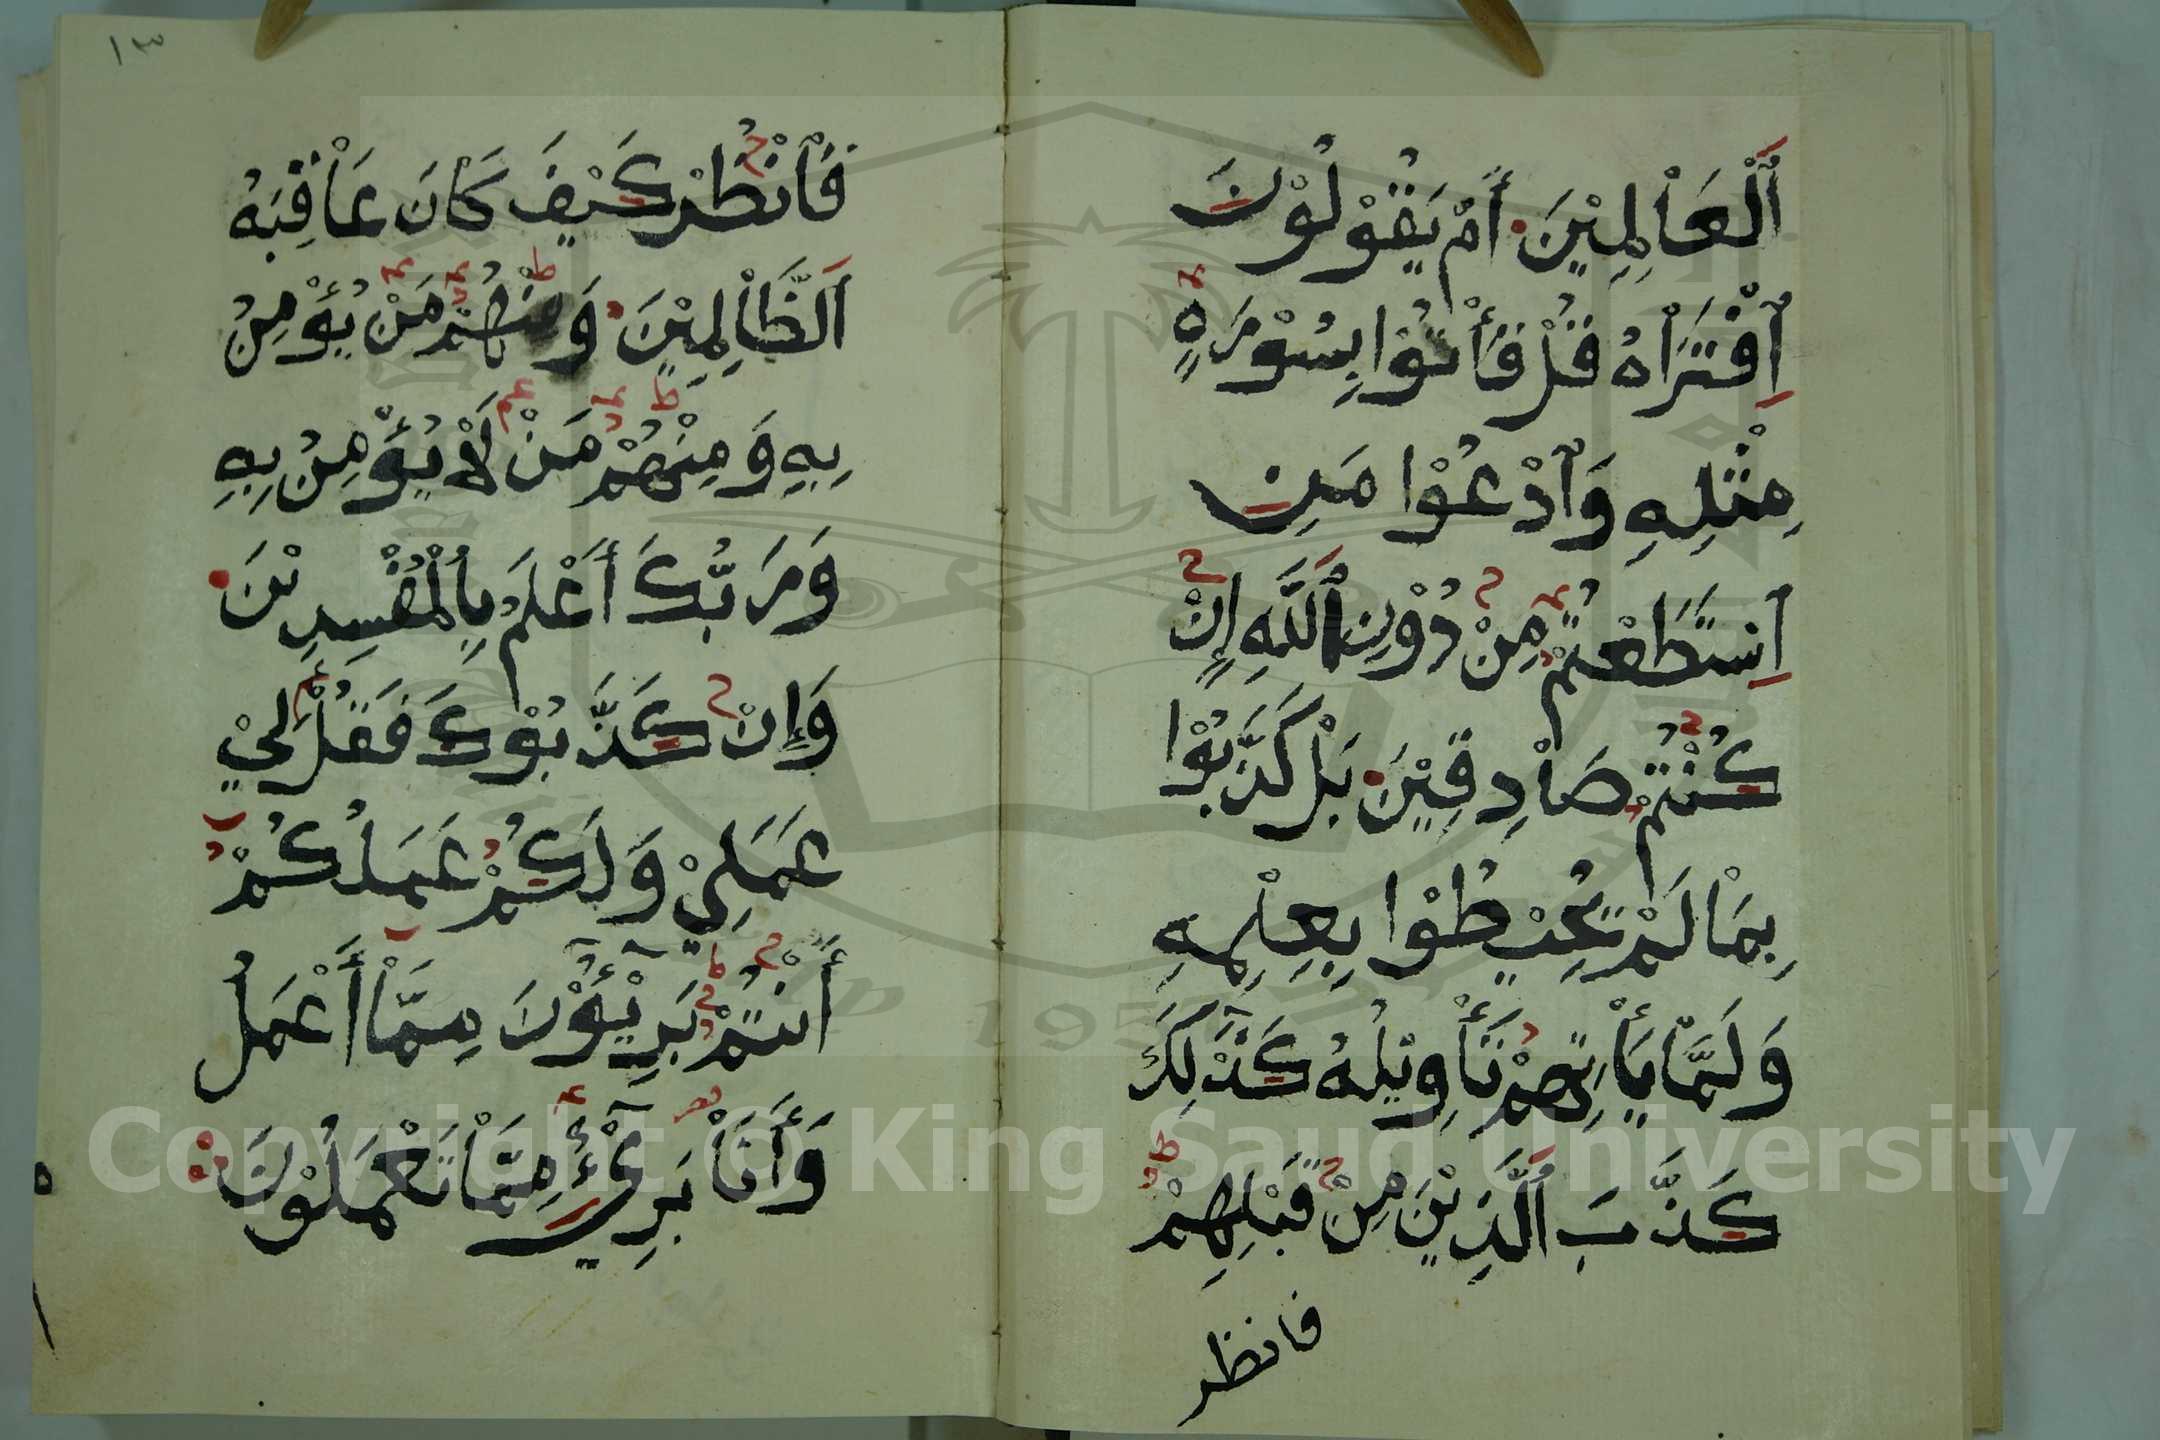 اَ۬لْعَاْلَمِيْنَ أَمْ يَقُوْلُوْنَ
اِ۬فْتَرَاْهُ قُلْ فَأْتُوْا بِسُوْرَةٍ
مِثْلِهِ وَاَ۬دْعُوْا مَنِ
اِ۬سْتَطَعْتُمْ مِنْ دُوْنِ اَ۬للَّهِ إِنْ
كُنْتُمْ صَاْدِقِيْنَ بَلْ كَذَّبُوْا
بِمَاْ لَمْ يُحِيْطُوْا بِعِلْمِهِ
وَلَمَّاْ يَأْتِهِمْ تَأْوِيْلُهُ كَذَلِكَ
كَذَّبَ اَ۬لَّذِيْنَ مِنْ قَبْلِهِمْ
فانظر
١٣
فَاَ۬نْظُرْ كَيْفَ كَاْنَ عَاْقِبَةُ
اَ۬لظَّاْلِمِيْنَ وَمِنْهُمْ مَنْ يُؤْمِنُ
بِهِ وَمِنْهُمْ مَنْ لَاْ يُؤْمِنُ بِهِ
وَرَبُّكَ أَعْلَمُ بِالْمُفْسِدِيْنَ
وَإِنْ كَذَّبُوْكَ فَقُلْ لِيْ
عَمَلِيْ وَلَكُمْ عَمَلُكُمْ
أَنْتُمْ بَرِيْٓؤُٓنَ مِمَّاْ أَعْمَلُ
وَأَنَاْ بَرِيْٓءٌ مِمَّاْ تَعْمَلُوْنَ
Copyright © King Saud University